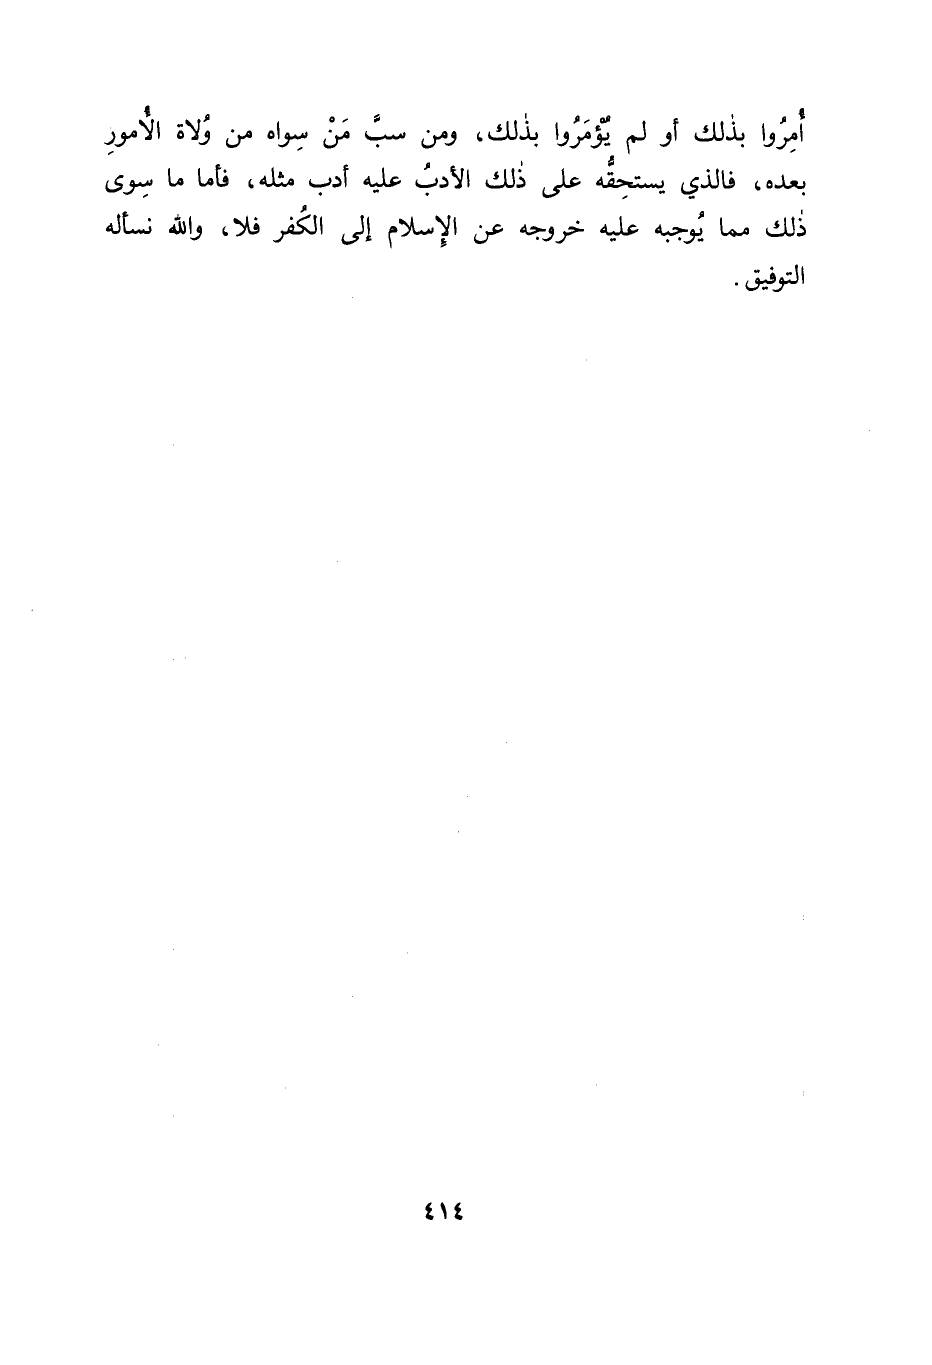 أُمِرُوا بذٰلك أو لم يُؤمَرُوا بذٰلك، ومن سبَّ مَنْ سِواه من وُلاة الأُمورِ
بعده، فالذي يستحِقُّه على ذٰلك الأدبُ عليه أدب مثله، فأما ما سِوى
ذٰلك مما يُوجبه عليه خروجه عن الإِسلام إلى الكُفر فلا، والله نسأله
التوفيق.
٤١٤